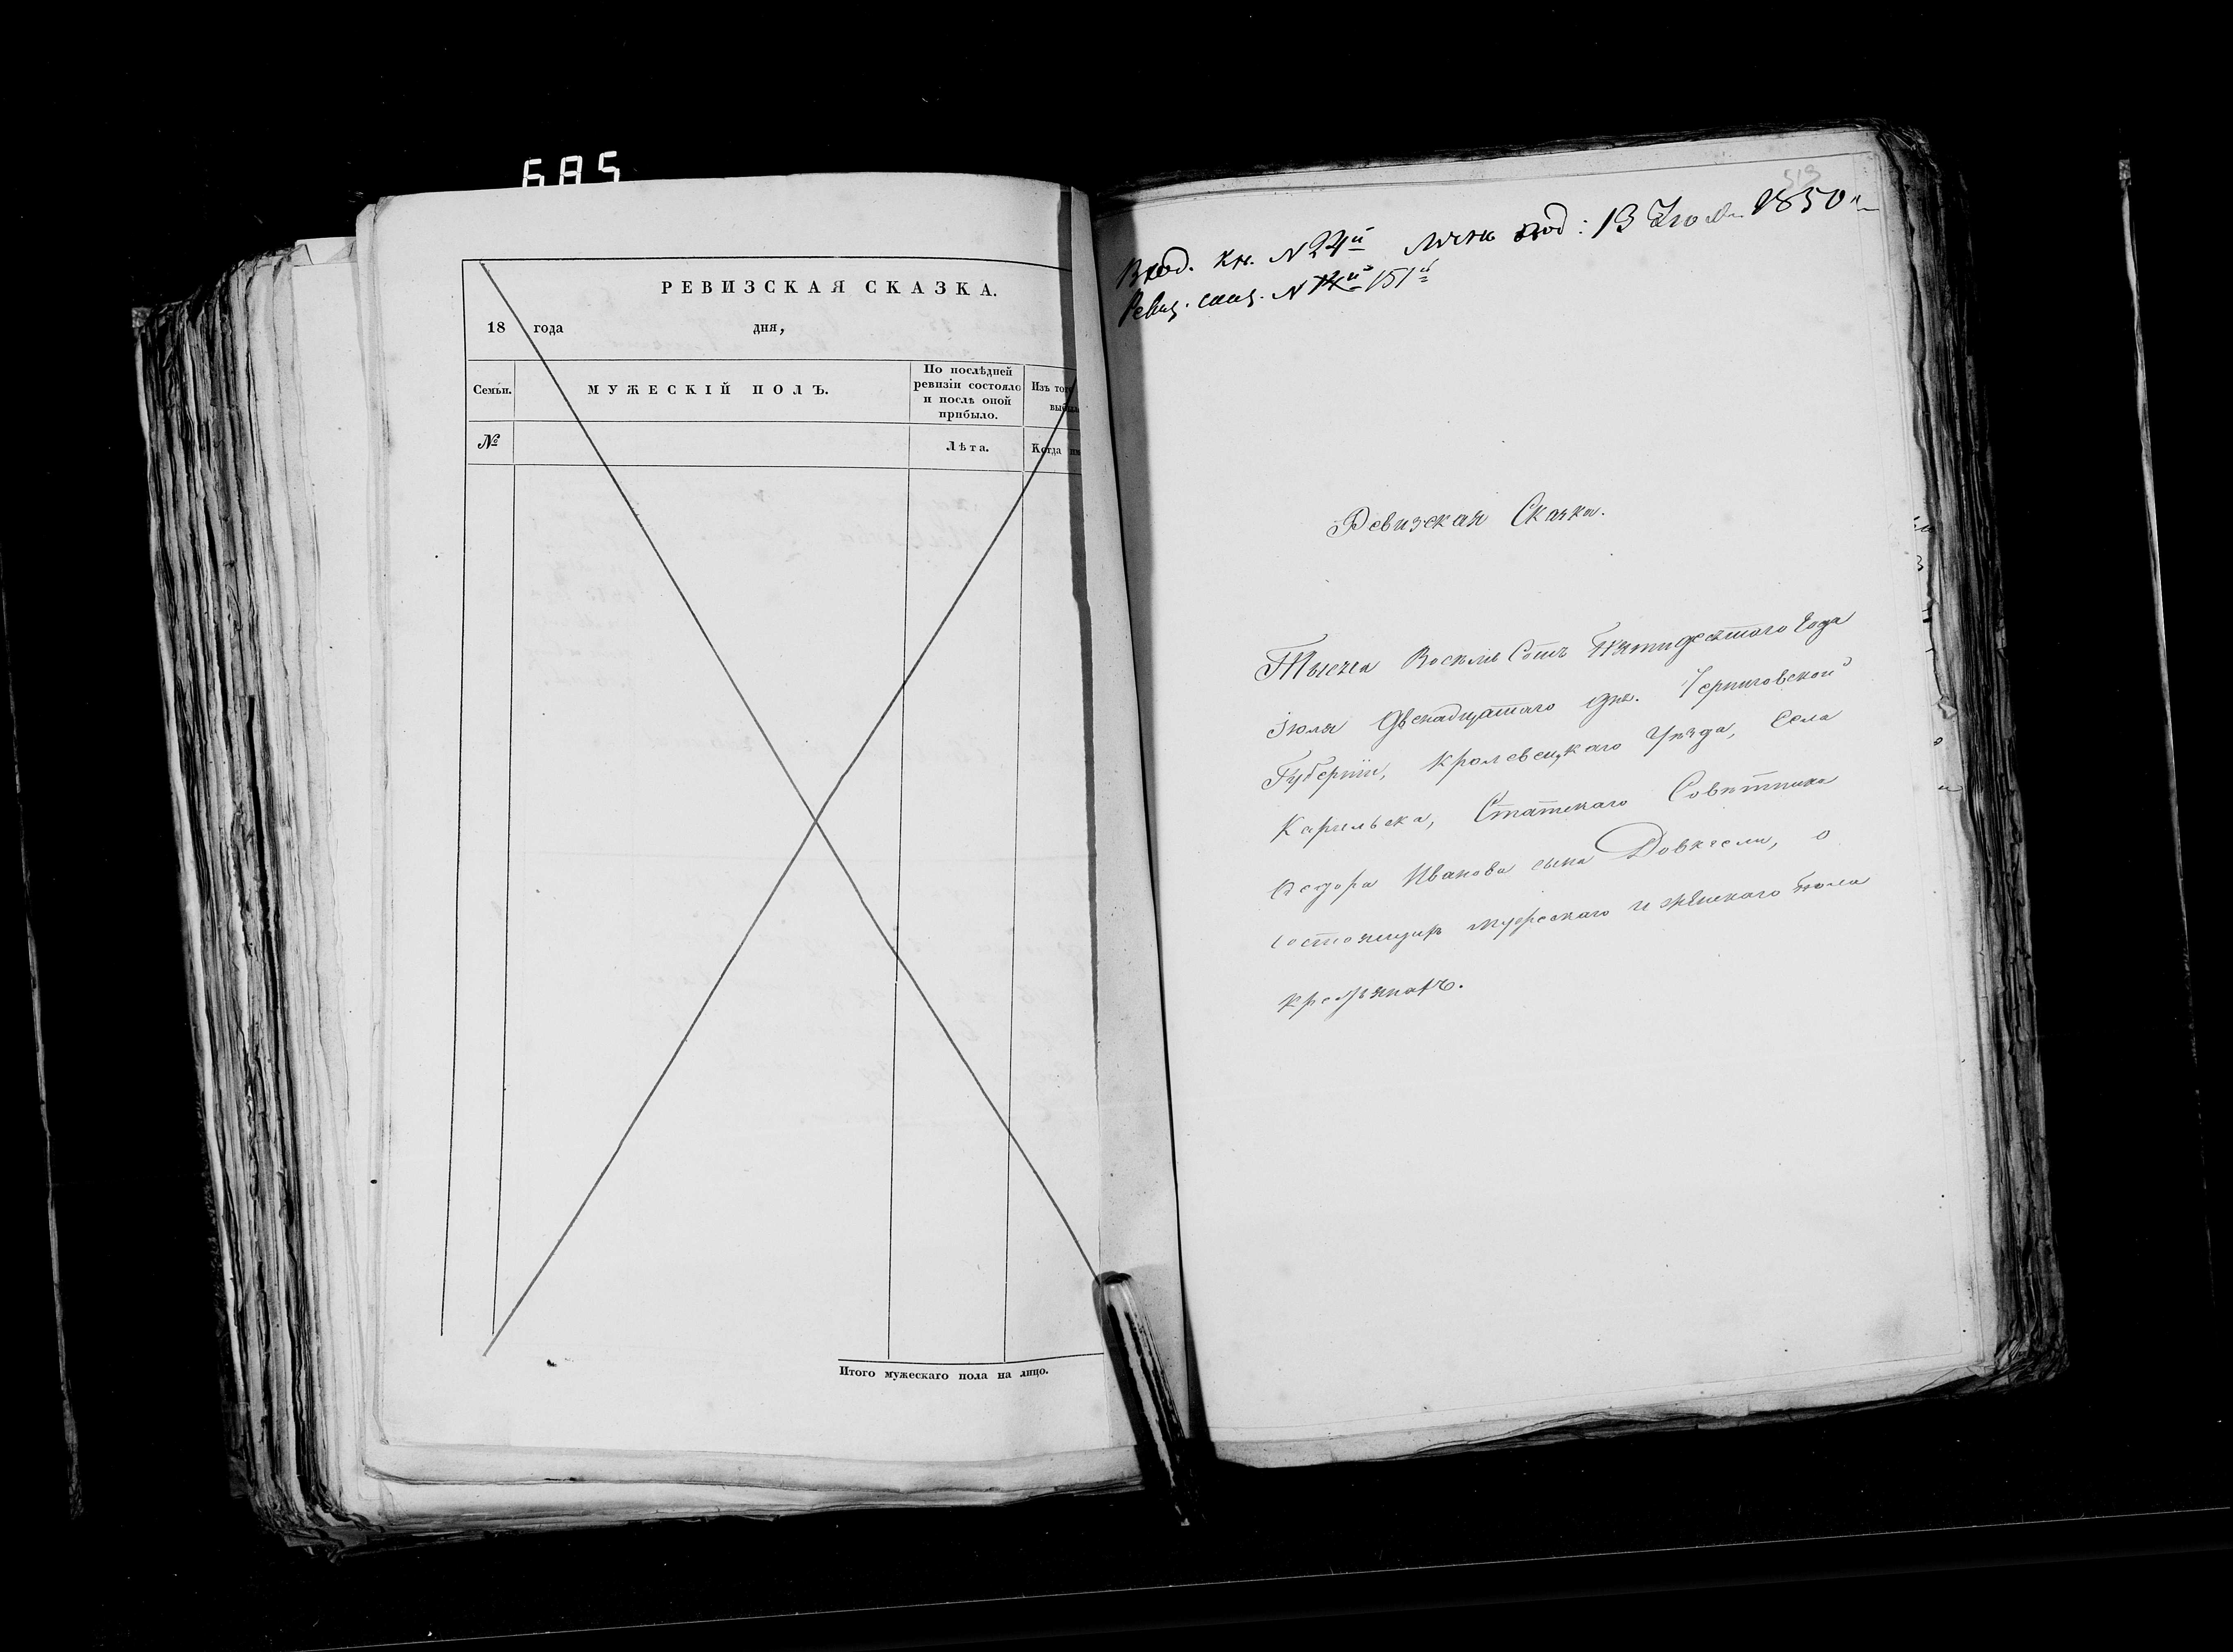 685
РЕВИЗСКАЯ СКАЗКА.
18 года дня,
Семьи.
МУЖЕСКІЙ ПОЛЪ.
По послѣдней
ревизіи состояло
и послѣ оной
прибыло.
Изъ тог
выбыл
№
Лѣта.
Когда им
Итого мужескаго пола на лицо.
519
Вход. кн. N 24й под: 13 Іюля 1850 г.
Ревиз. сказ. N 151й
Ревизская Сказка.
Тысяча Восемь Сотъ Пятидесятого года
Іюля двенадцатаго дня. Черниговской
Губерніи, Кролевецкаго Уѣзда, Села
Карыльска, Статскаго Совѣтника
Федора Иванова сына Довкгели, о
состоящихъ мужескаго и женскаго пола
крестьянахъ.